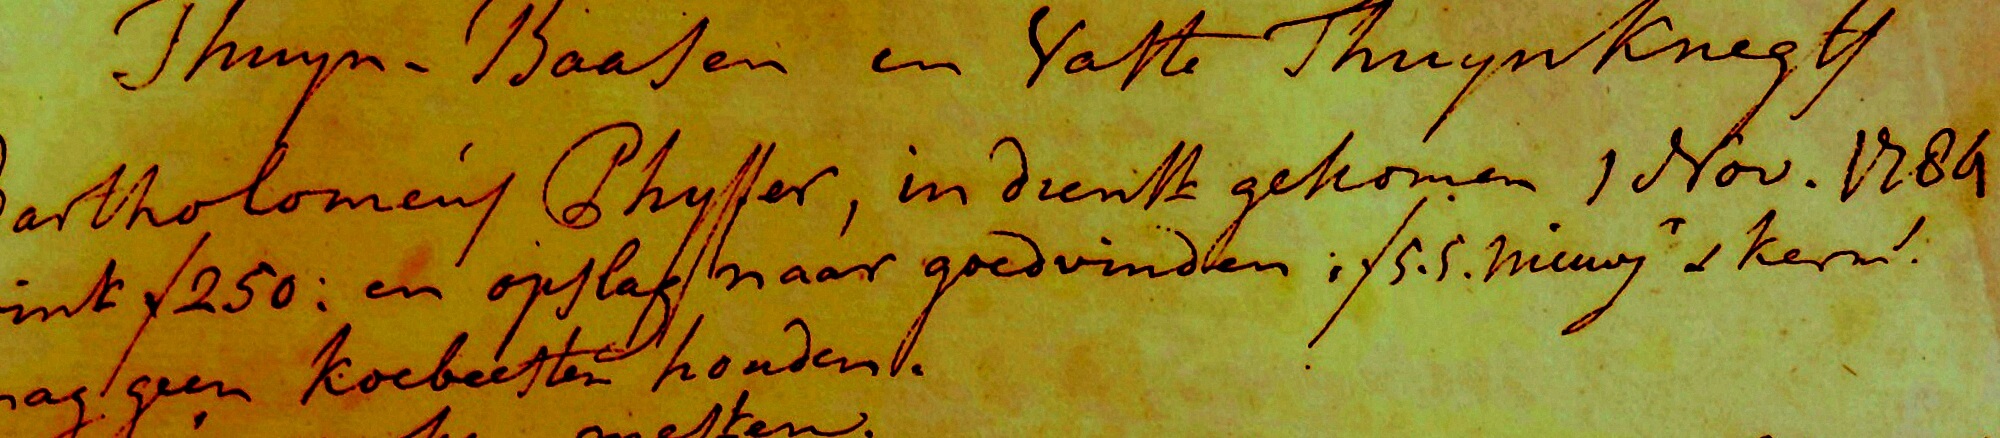 Thuyn-Baasen en Vaste Thuynknegts
Bartholomeus Physser, in dienst gekomen 1 Nov. 1784
wint ƒ250: en opslag naar goedvinden; ƒ5.5. nieuwj^r & kerm^s.
mag geen koebeesten houden.
mesten.